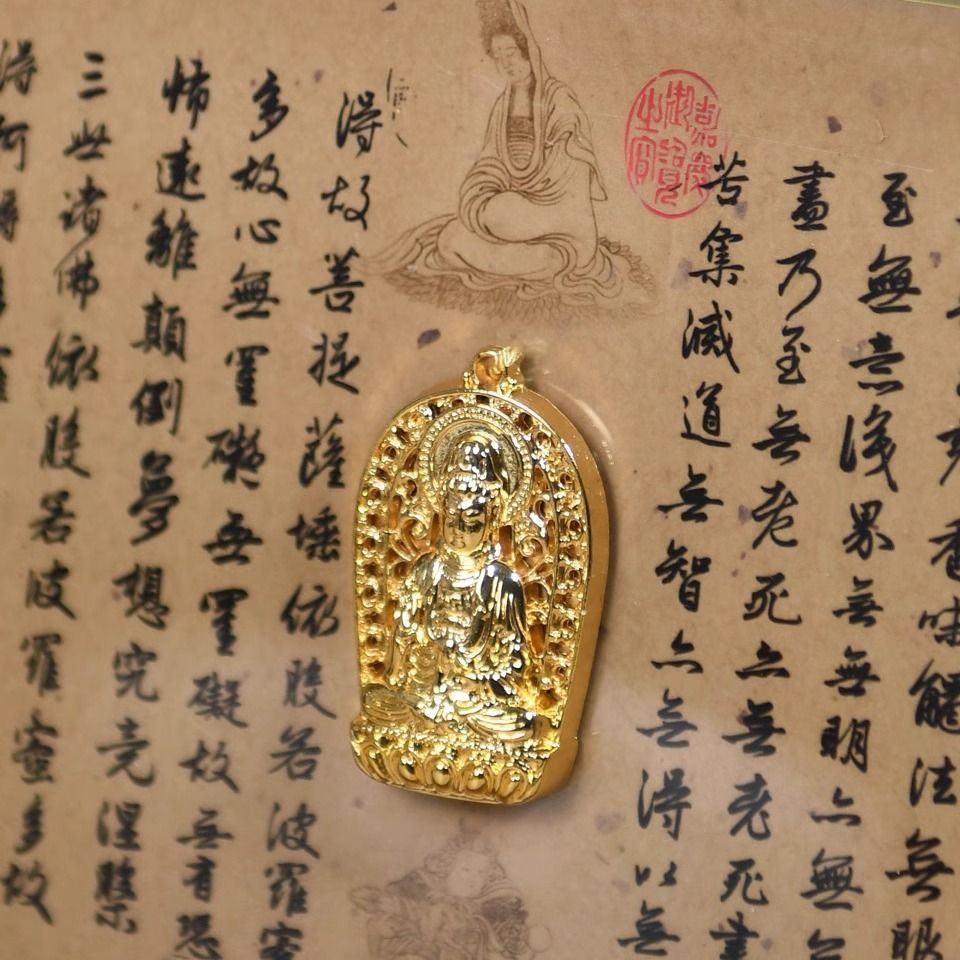 香味觸法無眼
至無意識界無無明亦無無
盡乃至無老死亦無老死盡
苦集滅道無智亦無得以無
嘉慶御覽之寶
得故菩提薩埵依般若波羅蜜
多故心無罣礙無罣礙故無有恐
怖遠離顛倒夢想究竟涅槃
三世諸佛依般若波羅蜜多故
得阿耨